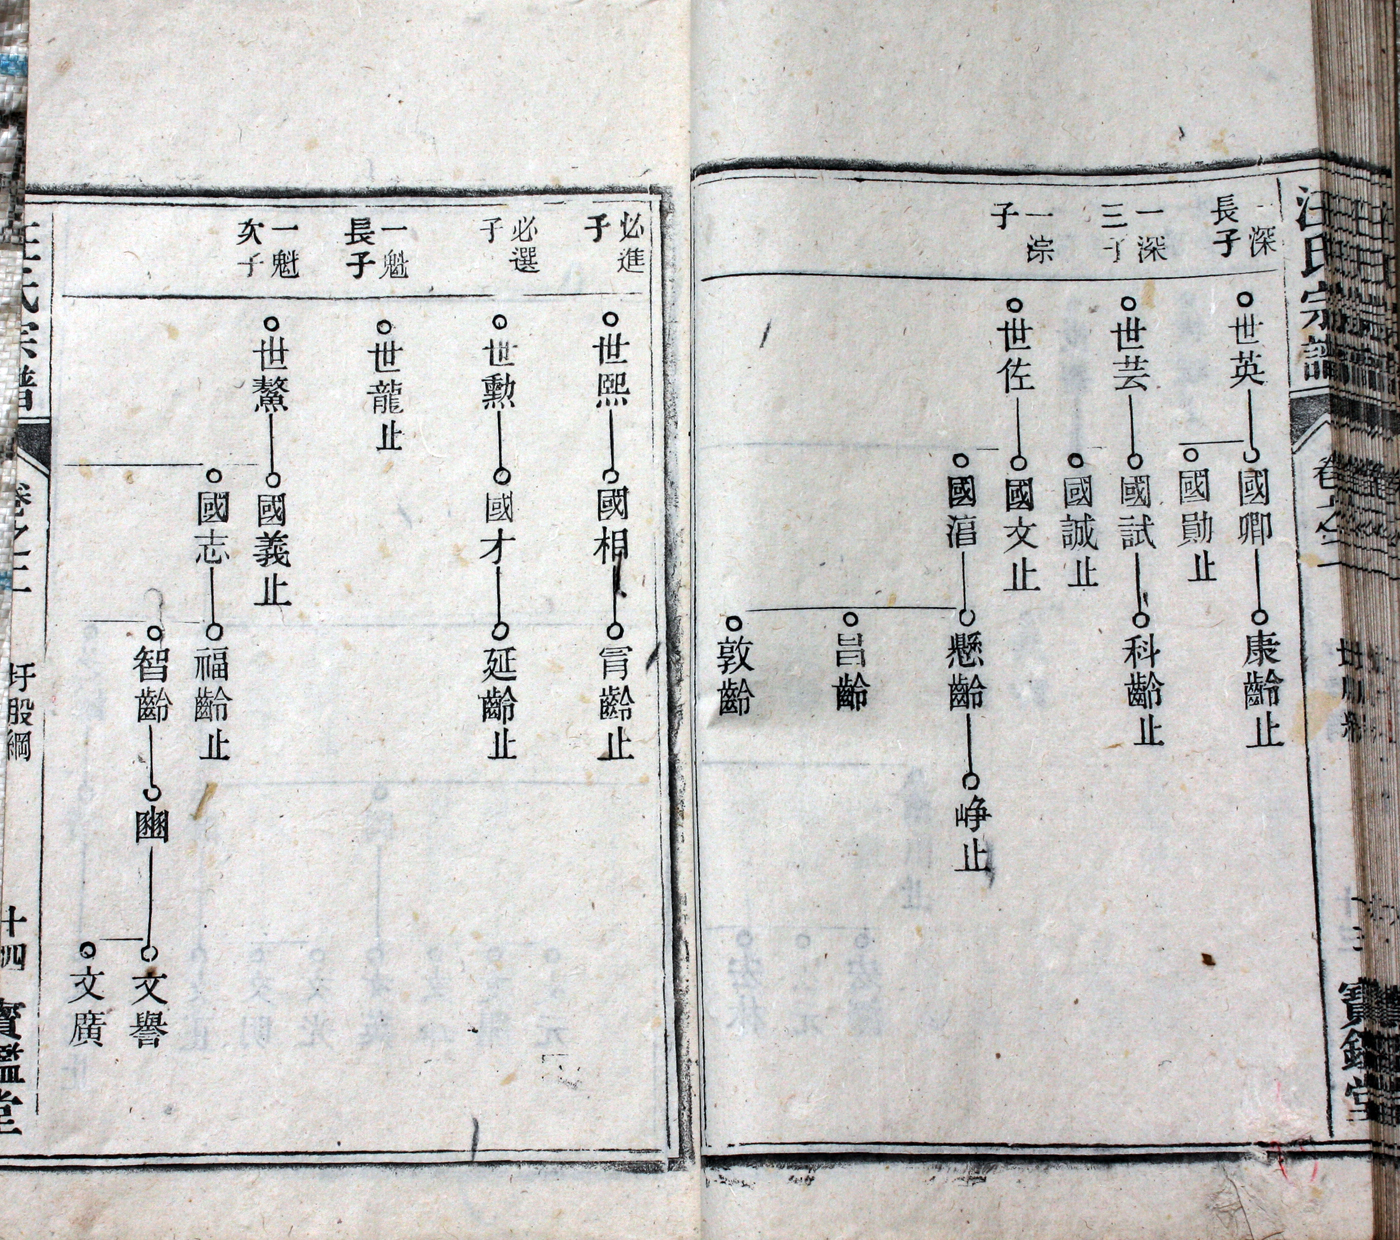 汪氏宗譜
卷之二
十三
寶鑑堂
一深長子
世英
國卿
康齡止
國勛止
一深三子
世芸
國試
科齡止
國誠止
一淙子
世佐
國文止
國涫
懸齡
崢止
昌齡
敦齡
必進子
世熙
國相
胥齡止
必選子
世勳
國才
延齡止
一魁長子
世龍止
一魁次子
世鰲
國義止
國志
福齡止
智齡
豳
文譽
文廣
汪氏宗譜
卷之二
圩股綱
十四
寶鑑堂